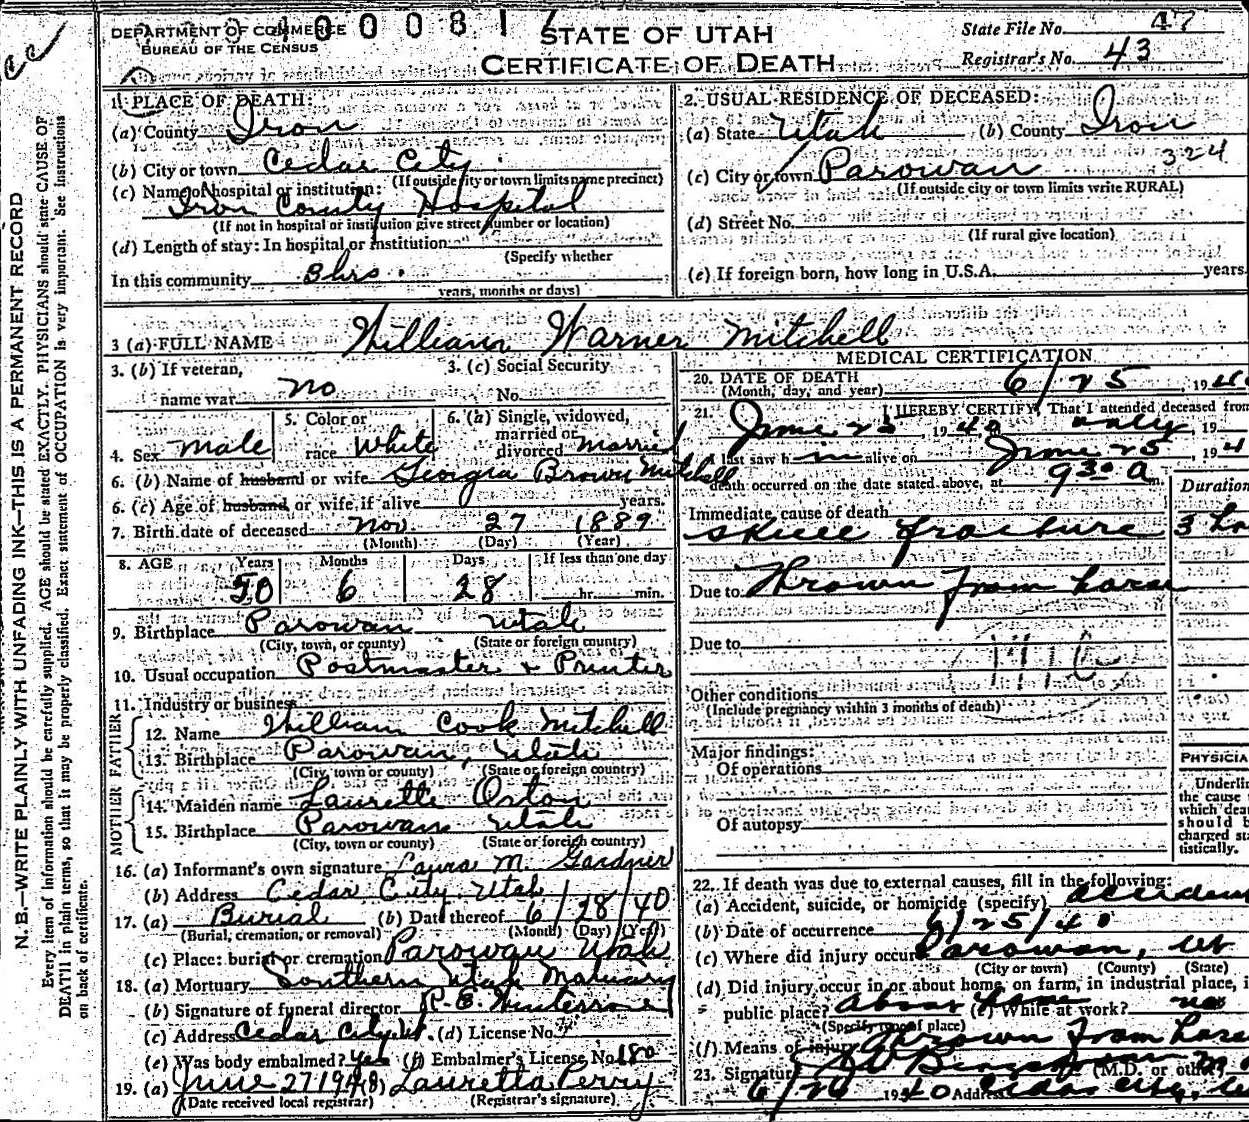 DEPARTMENT OF COMMERCE
BUREAU OF THE CENSUS
0 0 0 8 1
STATE OF UTAH
CERTIFICATE OF DEATH
State File No. 47
Registrar's No. 43
N. B.—WRITE PLAINLY WITH UNFADING INK—THIS IS A PERMANENT RECORD
Every item of information should be carefully supplied. AGE should be stated EXACTLY. PHYSICIANS should state CAUSE OF
DEATH in plain terms, so that it may be properly classified. Exact statement of OCCUPATION is very important. See instructions
on back of certificate.
1. PLACE OF DEATH:
(a) County Iron
(b) City or town Cedar City
(If outside city or town limits name precinct)
(c) Name of hospital or institution:
Iron County Hospital
(If not in hospital or institution give street number or location)
(d) Length of stay: In hospital or institution
(Specify whether
In this community 3 hrs.
years, months or days)
2. USUAL RESIDENCE OF DECEASED:
(a) State Utah (b) County Iron
324
(c) City or town Parowan
(If outside city or town limits write RURAL)
(d) Street No.
(If rural give location)
(e) If foreign born, how long in U.S.A. years.
3 (a) FULL NAME William Warner Mitchell
3. (b) If veteran,
name war no
3. (c) Social Security
No.
4. Sex male
5. Color or
race White
6. (a) Single, widowed,
married or
divorced married
6. (b) Name of husband or wife Georgia Brown Mitchell
6. (c) Age of husband or wife if alive years.
7. Birth date of deceased Nov. 27 1889
(Month) (Day) (Year)
8. AGE Years Months Days If less than one day
50 6 28 hr. min.
9. Birthplace Parowan Utah
(City, town, or county) (State or foreign country)
10. Usual occupation Postmaster & Printer
11. Industry or business
FATHER
12. Name William Cook Mitchell
13. Birthplace Parowan, Utah
(City, town or county) (State or foreign country)
MOTHER
14. Maiden name Laurette Orton
15. Birthplace Parowan Utah
(City, town or county) (State or foreign country)
16. (a) Informant's own signature Laura M. Gardner
(b) Address Cedar City Utah
17. (a) Burial (b) Date thereof 6/28/40
(Burial, cremation, or removal) (Month) (Day) (Year)
(c) Place: burial or cremation Parowan Utah
18. (a) Mortuary Southern Utah Mortuary
(b) Signature of funeral director
(c) Address Cedar City Ut. (d) License No.
(e) Was body embalmed? Yes (f) Embalmer's License No. 180
19. (a) June 27 1940 (b) Lauretta Perry
(Date received local registrar) (Registrar's signature)
MEDICAL CERTIFICATION
20. DATE OF DEATH
(Month, day, and year) 6/25, 1940
21. I HEREBY CERTIFY, That I attended deceased from
June 25 1940 only, 19
I last saw him alive on June 25, 194
death occurred on the date stated above, at 9 30 A m.
Duration
Immediate cause of death
skull fracture 3 ho
Due to Thrown from horse
Due to
Other conditions
(Include pregnancy within 3 months of death)
Major findings:
Of operations
Of autopsy
PHYSICIA
Underlin
the cause
which dea
should b
charged sta
tistically.
22. If death was due to external causes, fill in the following:
(a) Accident, suicide, or homicide (specify) acciden
(b) Date of occurrence 6/25/40
(c) Where did injury occur Parowan, Ut
(City or town) (County) (State)
(d) Did injury occur in or about home, on farm, in industrial place, i
public place? about home (e) While at work? no
(Specify type of place)
(f) Means of injury Thrown from horse
23. Signature (M.D. or other)
6/26 1940 Address Cedar City,